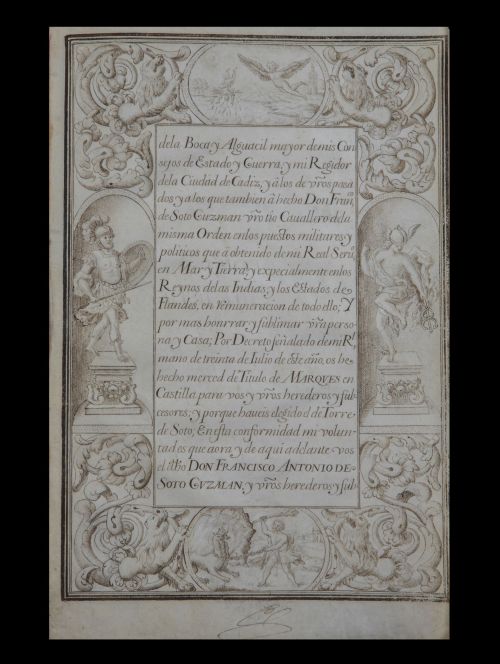 dela Boca, y Alguacil mayor demis Con
sejos de Estado y Guerra, y mi Regidor
dela Ciudad de Cadiz, y â los de vrōs pasa
dos y alos que tambien â hecho Don Fran.co
de Soto Guzman vrō tio Cauallero dela
misma Orden enlos puestos militares y
politicos que â obtenido de mi Real Seru.o
en Mar y Tierra, y expecialmente enlos
Reynos delas Indias, y los Estados de
Flandes, en rēmuneracion de todo ello; Y
por mas honrrar y sublimar vrā perso
na y Casa; Por Decreto señalado demi Rl
mano de treinta de Iulio de este año, os he
hecho merced de Titulo de MARQUES en
Castilla para vos y vrōs herederos y sub
cesores; y porque haueis elegido el de Torre
de Soto, En esta conformidad mi volun
tad es que aora, y de aqui adelante vos
el dho DON FRANCISCO ANTONIO DE
SOTO GVZMAN, y vrōs herederos y sub